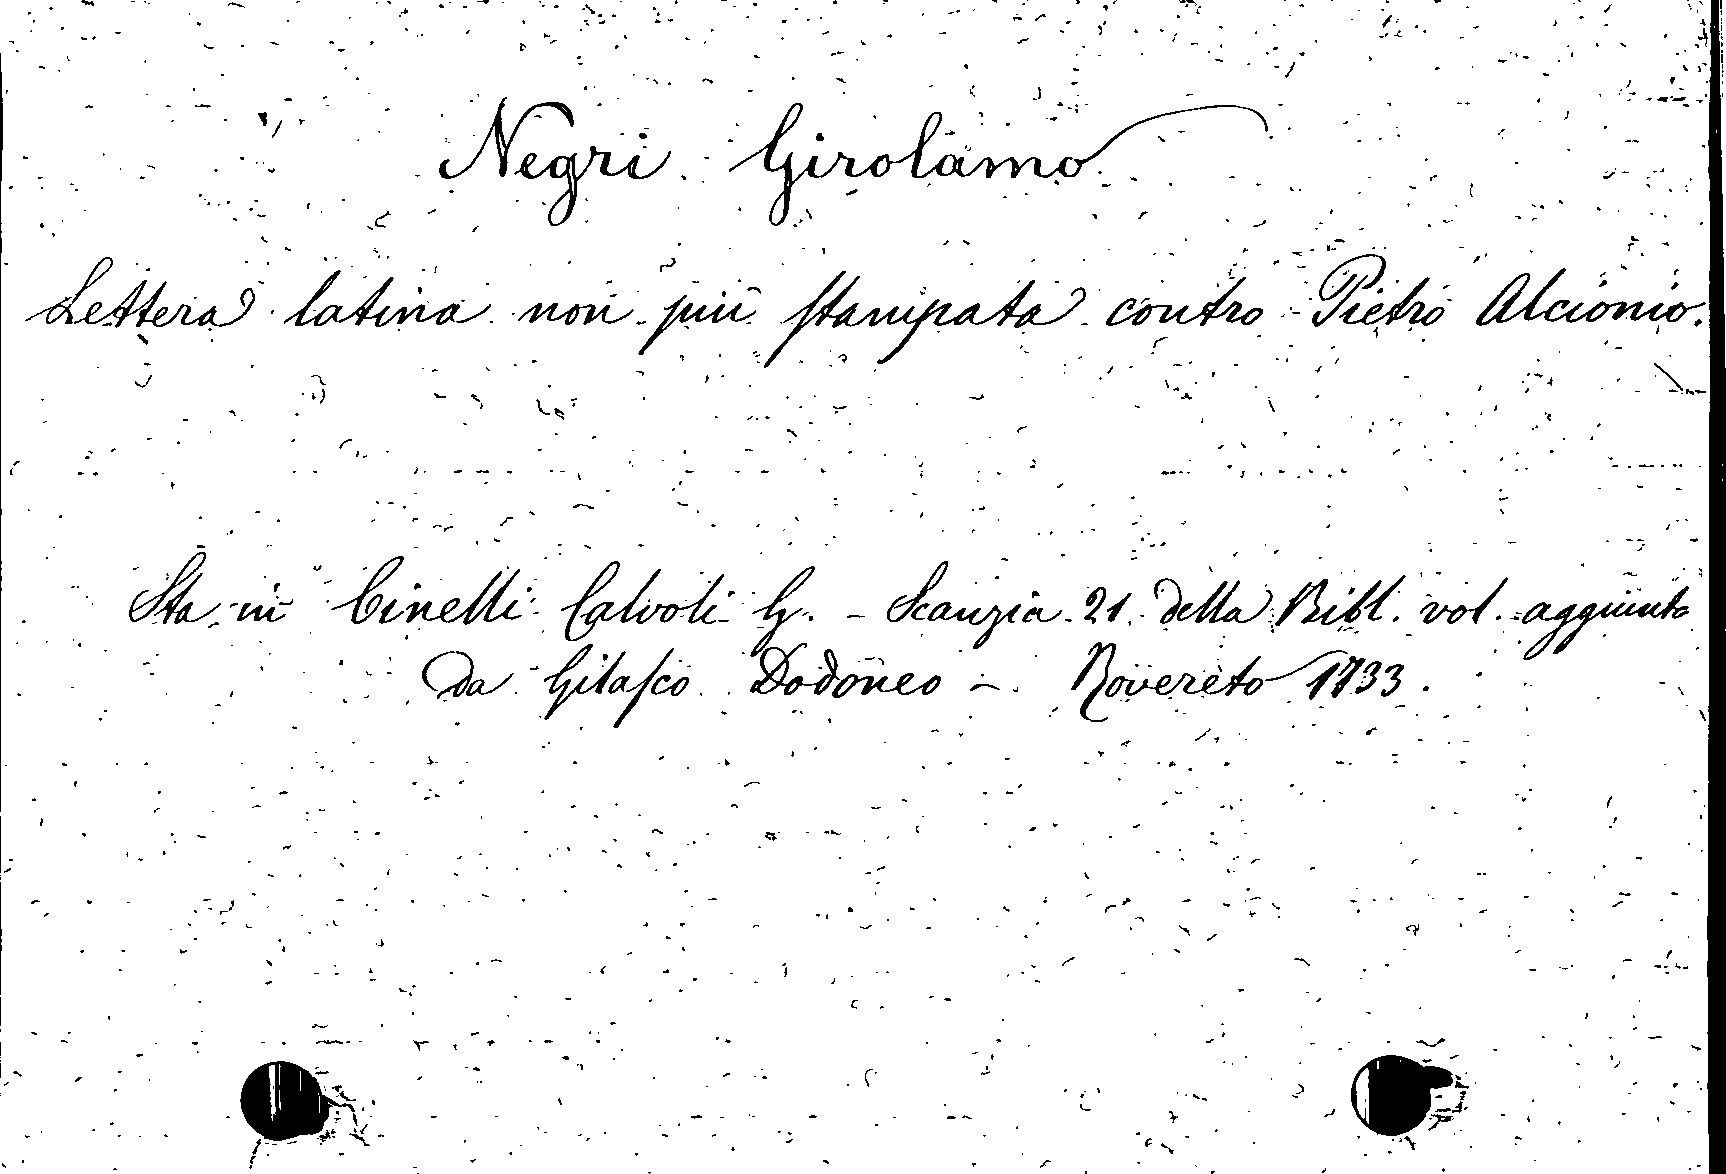 Negri Girolamo
Lettera latina non più stampata contro Pietro Alcionio.
Sta in Cinelli Calvoli G. - Scanzia 21. della Bibl. vol. aggiunta
da Gilasco Dodoneo - Rovereto 1733.